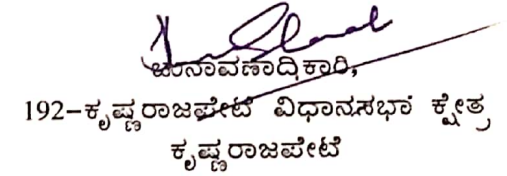 ಚುನಾವಣಾಧಿಕಾರಿ,
192-ಕೃಷ್ಣರಾಜಪೇಟೆ ವಿಧಾನಸಭಾ ಕ್ಷೇತ್ರ
ಕೃಷ್ಣರಾಜಪೇಟೆ